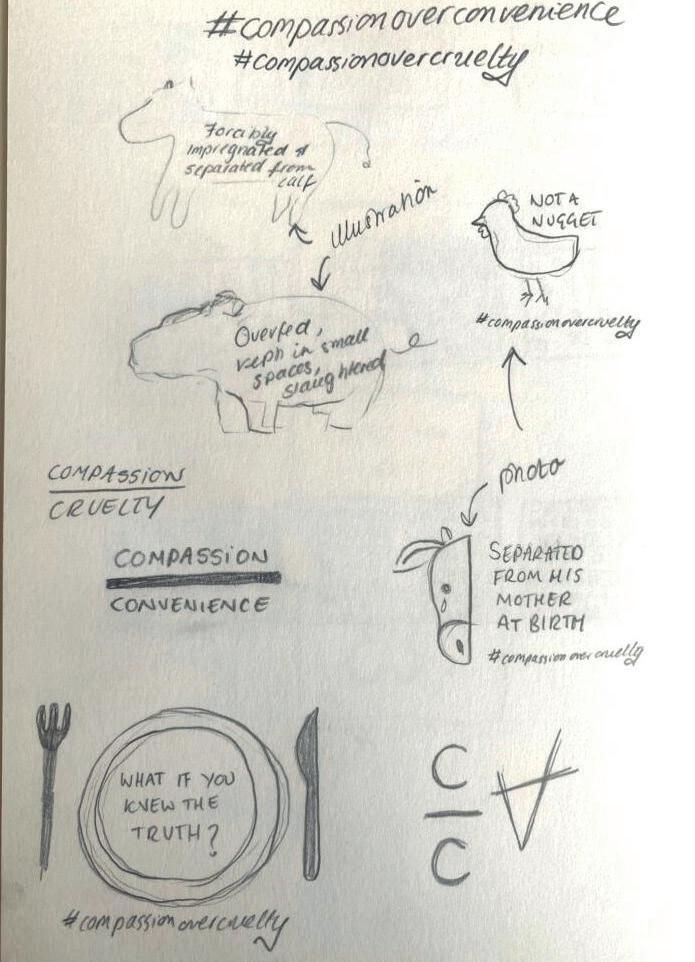 #compassionoverconvenience
#compassionovercruelty
Forcibly
impregnated &
separated from
calf
illustration
NOT A
NUGGET
#compassionovercruelty
Overfed,
keph in small
spaces,
slaughtered
photo
COMPASSION
CRUELTY
COMPASSION
CONVENIENCE
SEPARATED
FROM HIS
MOTHER
AT BIRTH
#compassionovercruelty
WHAT IF YOU
KNEW THE
TRUTH?
#compassionovercruelty
C
C
V